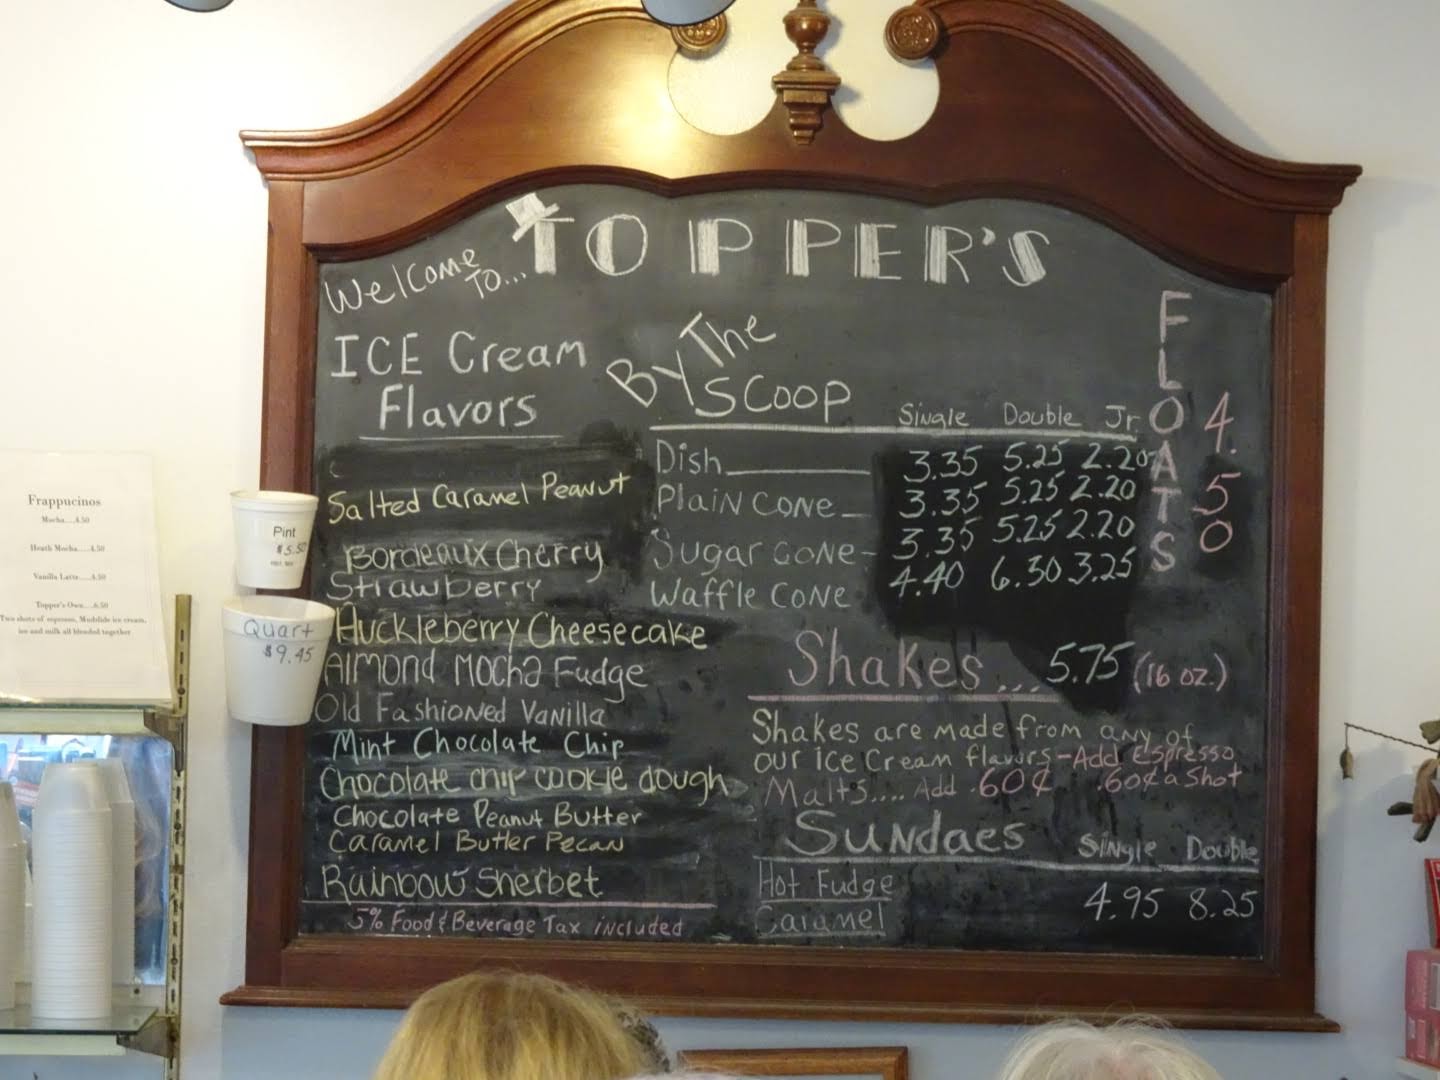 Welcome To... TOPPER'S
ICE Cream
Flavors
Salted Caramel Peanut
Bordeaux Cherry
Strawberry
Huckleberry Cheesecake
Almond Mocha Fudge
Old Fashioned Vanilla
Mint Chocolate Chip
Chocolate chip cookie dough
Chocolate Peanut Butter
Caramel Butter Pecan
Rainbow Sherbet
5% Food & Beverage Tax included
By The
Scoop
Single Double Jr.
Dish 3.35 5.25 2.20
Plain Cone 3.35 5.25 2.20
Sugar Cone 3.35 5.25 2.20
Waffle Cone 4.40 6.30 3.25
FLOATS
4.50
Shakes... 5.75 (16 oz.)
Shakes are made from any of
our Ice Cream flavors - Add Espresso
Malts.... Add .60¢ .60¢ a shot
Sundaes Single Double
Hot Fudge
Caramel 4.95 8.25
Frappucinos
Mocha....4.50
Heath Mocha....4.50
Vanilla Latte....4.50
Topper's Own....6.50
Two shots of espresso, Mudslide ice cream,
ice and milk all blended together
Pint
$5.50
Quart
$9.45